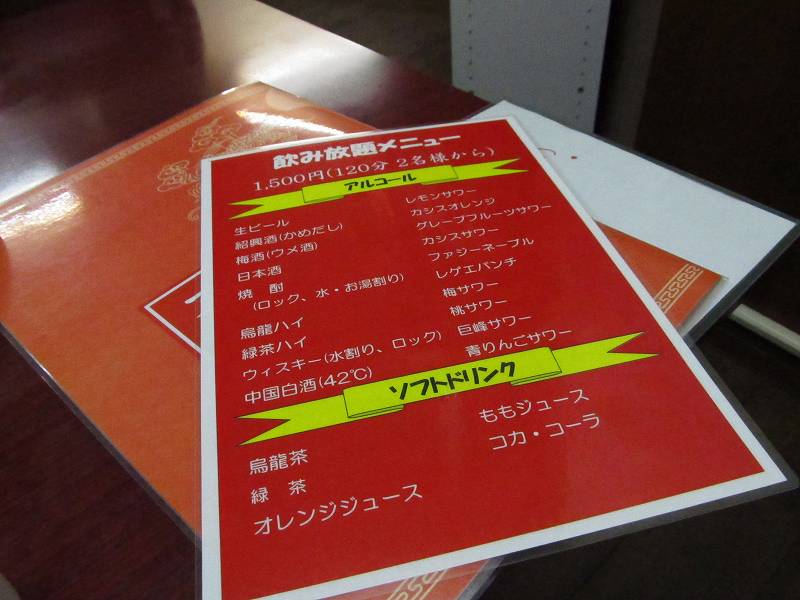 飲み放題メニュー
1,500円(120分 2名様から)
アルコール
生ビール
紹興酒(かめだし)
梅酒(ウメ酒)
日本酒
焼　酎
(ロック、水・お湯割り)
烏龍ハイ
緑茶ハイ
ウィスキー(水割り、ロック)
中国白酒(42℃)
レモンサワー
カシスオレンジ
グレープフルーツサワー
カシスサワー
ファジーネーブル
レゲエパンチ
梅サワー
桃サワー
巨峰サワー
青りんごサワー
ソフトドリンク
烏龍茶
緑　茶
オレンジジュース
ももジュース
コカ・コーラ